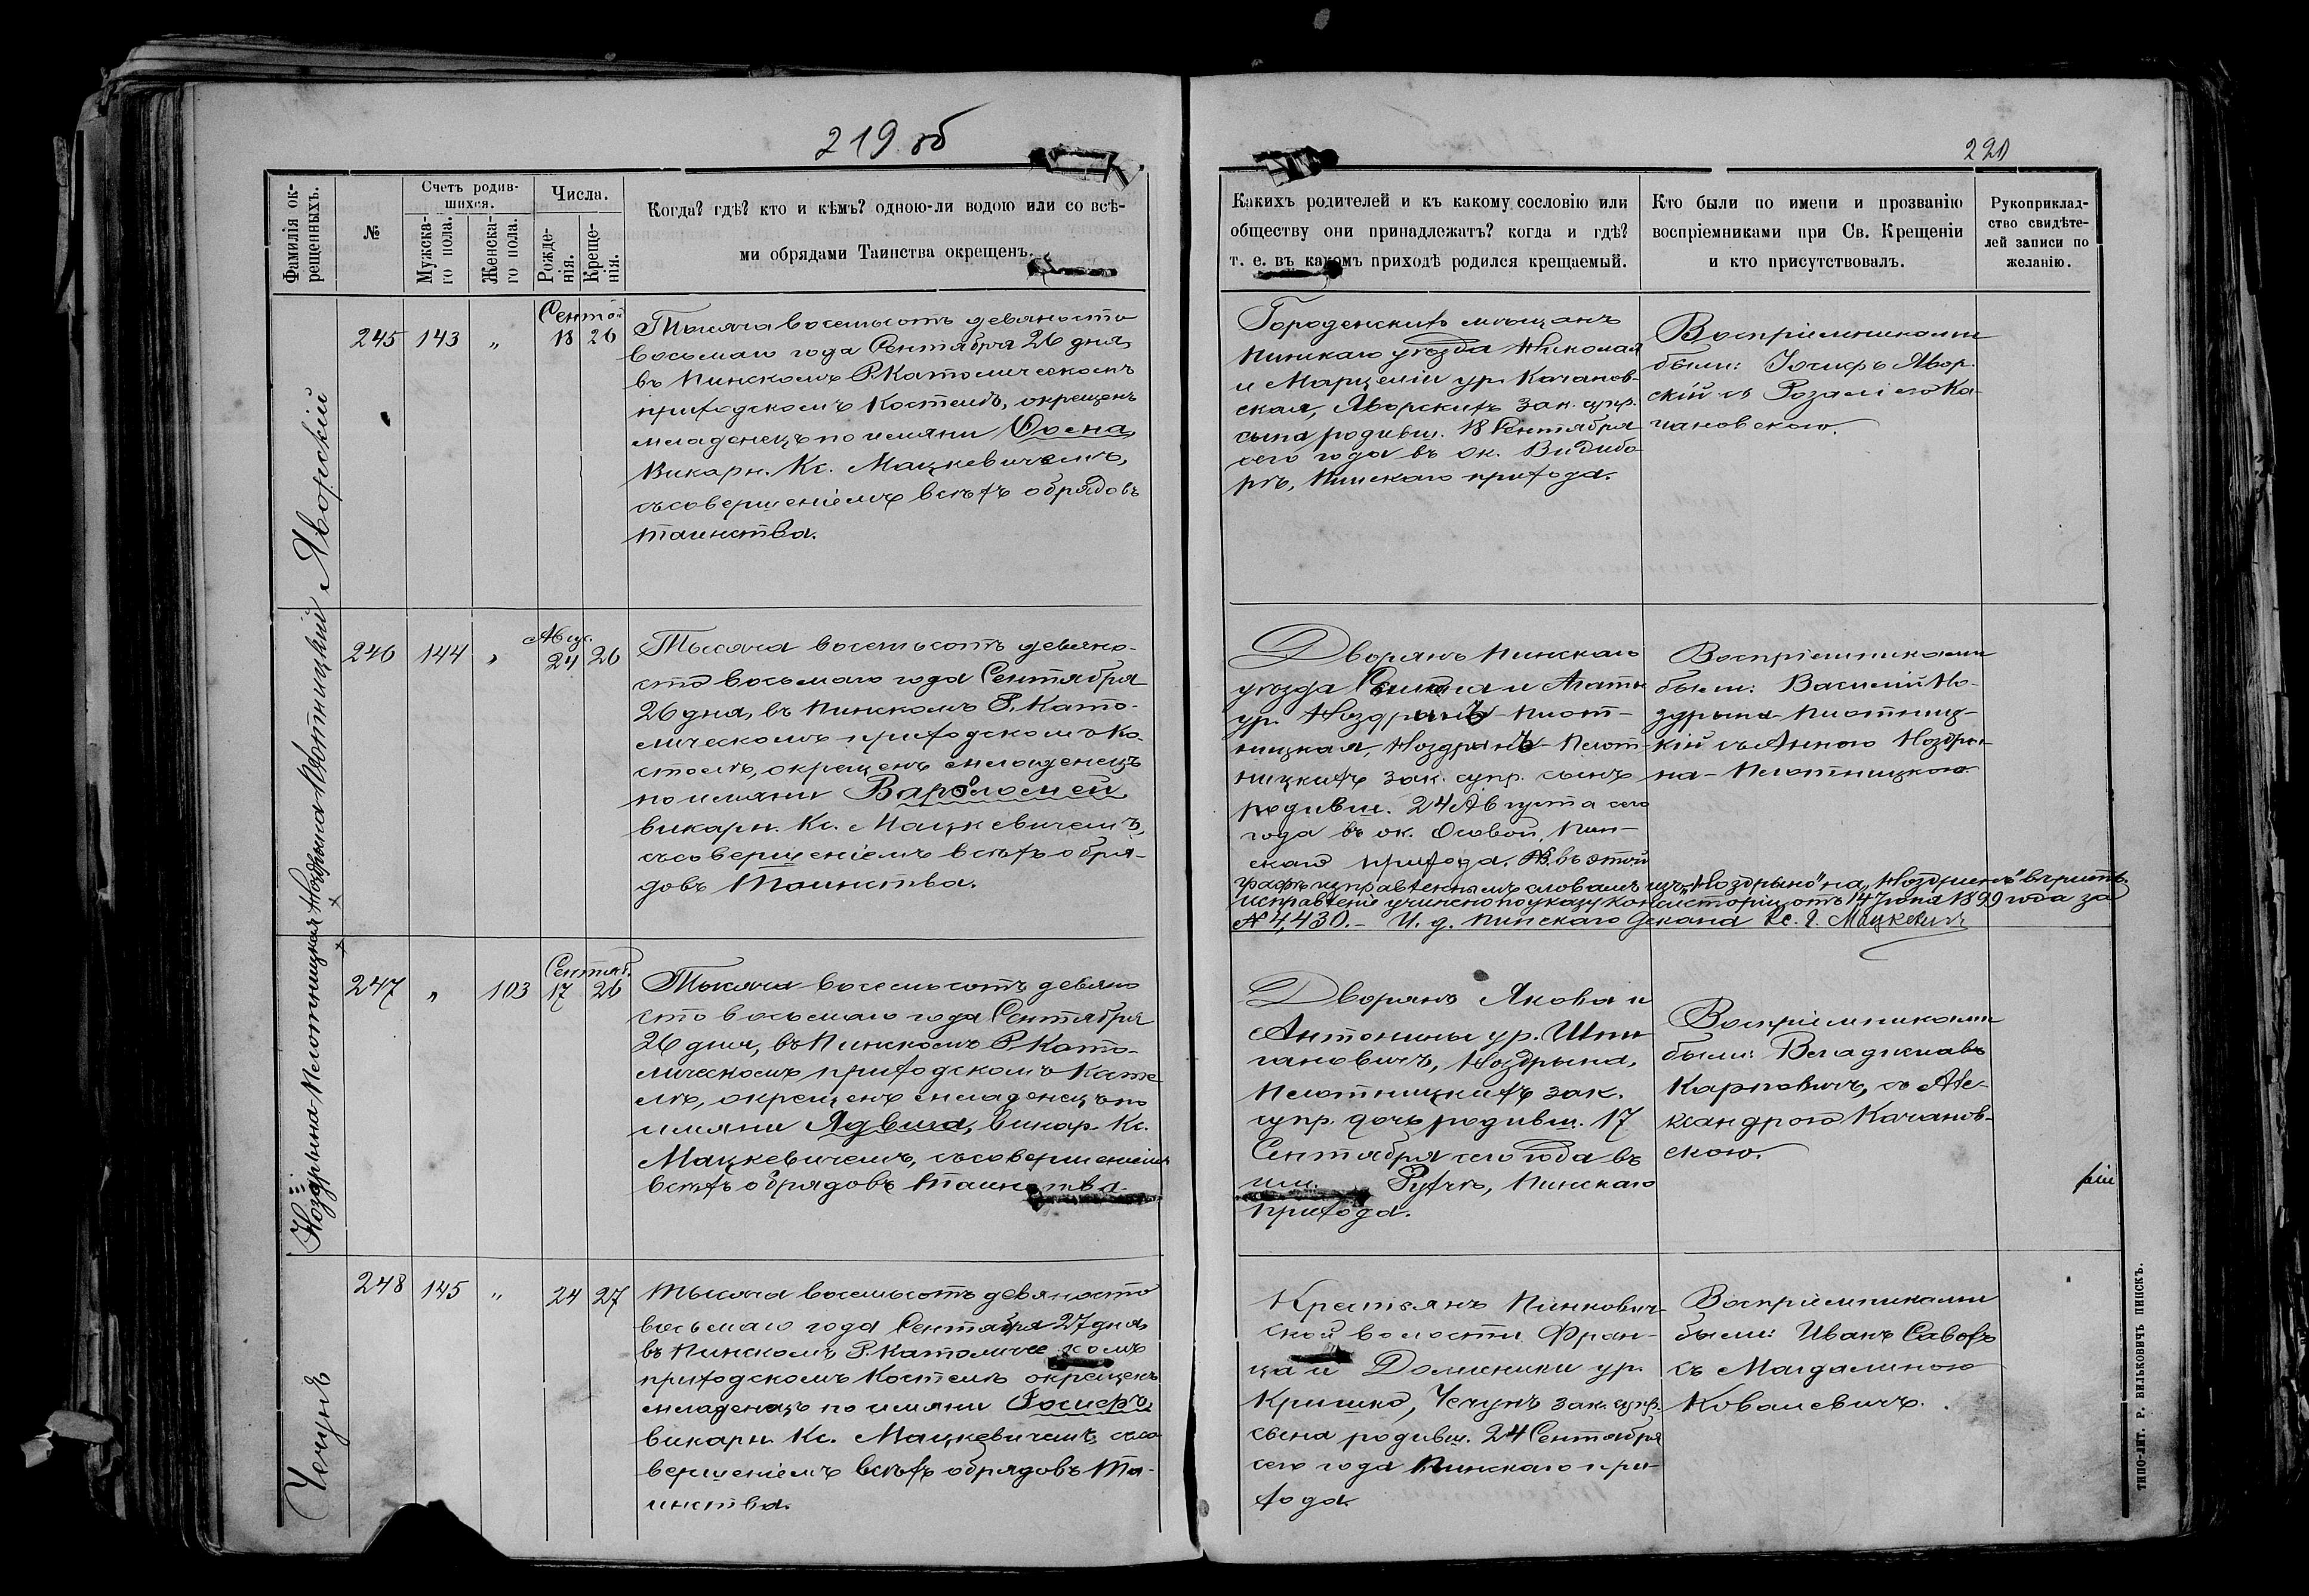 219 об
220
Фамилія ок-
рещенныхъ.
№
Счетъ родив-
шихся.
Мужска-
го пола.
Женска-
го пола.
Числа.
Рожде-
нія.
Креще-
нія.
Когда? гдѣ? кто и кѣмъ? одною-ли водою или со всѣ-
ми обрядами Таинства окрещенъ.
Какихъ родителей и къ какому сословію или
обществу они принадлежатъ? когда и гдѣ?
т. е. въ какомъ приходѣ родился крещаемый.
Кто были по имени и прозванію
воспріемниками при Св. Крещеніи
и кто присутствовалъ.
Рукоприклад-
ство свидѣте-
лей записи по
желанію.
Яворскій
245 143 „
18 26
Тысяча восемьсотъ девяносто
восьмаго года Сентября 26 дня,
въ Пинскомъ Р. Католическомъ
приходскомъ Костелѣ, окрещенъ
младенецъ по имяни
Викарн. Кс. Мацкевичемъ,
съ совершеніемъ всѣхъ обрядовъ
таинства.
Городенскихъ мѣщанъ
Пинскаго уѣзда Николая
и Марцеліи ур. Качанов-
ская, Яворскихъ зак. супр.
сына родивш. 18 Сентября
сего года въ ок. Видибо-
рѣ, Пинскаго прихода.
Воспріемниками
были: Іосифъ Явор-
скій съ Розаліею Ка-
чановскою.
Ноздрына Плотницкій
246 144 „
Авгус.
24 26
Тысяча восемьсотъ девяно-
сто восьмаго года Сентября
26 дня, въ Пинскомъ Р. Като-
лическомъ приходскомъ Ко-
стелѣ, окрещенъ младенецъ
по имяни Варѳоломей
викарн. Кс. Мацкевичемъ,
съ совершеніемъ всѣхъ обря-
довъ Таинства.
Дворянъ Пинскаго
уѣзда и Агаты
ур. Ноздринъ-Плот-
ницкая, Ноздринъ-Плот-
ницкихъ зак. супр. сынъ
родивш. 24 Августа сего
года въ ок. Осовой, Пин-
скаго прихода. NB. въ этой
графѣ исправленнымъ словамъ изъ „Ноздрыно" на „Ноздринъ" вѣрить.
Исправленіе учинено по указу Консисторіи отъ 14 Іюня 1899 года за
№ 4,430. — И. д. Пинскаго Декана Кс. Мацкевичъ
Воспріемниками
были: Василій Но-
здрына-Плотниц-
кій съ Анною Ноздры-
на-Плотницкою.
Ноздрына-Плотницкая
247 „ 103
Сентяб.
17 26
Тысяча восемьсотъ девяно
сто восьмаго года Сентября
26 дня, въ Пинскомъ Р. Като-
лическомъ приходскомъ Косте-
лѣ, окрещенъ младенецъ по
имяни Ядвига, викар. Кс.
Мацкевичемъ, съ совершеніемъ
всѣхъ обрядовъ таинства.
Дворянъ Якова и
Антонины ур.
Ноздрына,
Плотницкихъ зак.
супр. дочь родивш. 17
Сентября сего года въ
Пинскаго
прихода.
Воспріемниками
были: Владиславъ
Карповичъ, съ Але-
ксандрою Качанов-
скою.
248 145 „
24 27
Тысяча восемьсотъ девяносто
восьмаго года Сентября 27 дня,
въ Пинскомъ Р. Католическомъ
приходскомъ Костелѣ окрещенъ
младенецъ по имяни Іосифъ,
викарн. Кс. Мацкевичемъ, съ со-
вершеніемъ всѣхъ обрядовъ Та-
инства.
Крестьянъ Пинкович-
ской волости Фран-
ца и Доминики ур.
зак. супр.
сына родивш. 24 Сентября
сего года Пинскаго при-
хода.
Воспріемниками
были: Иванъ
съ Магдалиною
Ковалевичъ.
ТИПО-ЛИТ. Р. ВИЛЬКОВИЧЪ ПИНСКЪ.